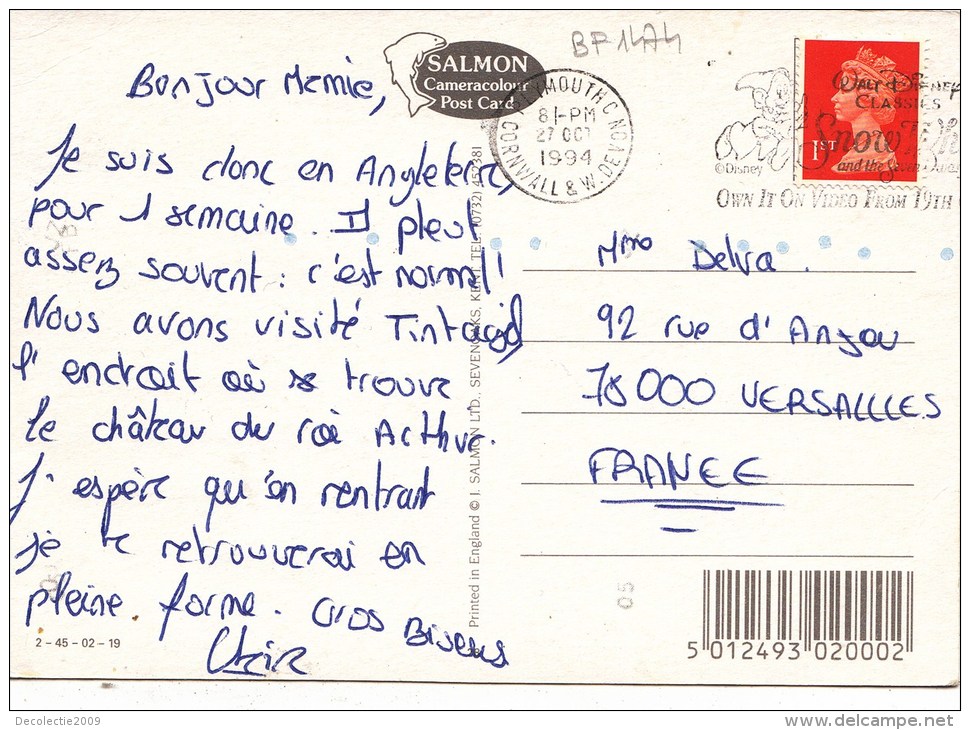 BF 1474
SALMON
Cameracolour
Post Card
PLYMOUTH
CORNWALL & W. DEVON
81-PM
27 OCT
1994
1ST
WALT DISNEY
CLASSICS
SNOW WH
and the Seven Dwar
©Disney
OWN IT ON VIDEO FROM 19TH
Bonjour Mamie,
Je suis donc en Angleterre,
pour 1 semaine. Il pleut
assez souvent : c'est normal!
Nous avons visité Tintagel
l'endroit où se trouve
le château du roi Arthur.
J'espère qu'en rentrant
je te retrouverai en
pleine forme. Gros Bisous
Mme Delva.
92 rue d'Anjou
78000 VERSAILLES
FRANCE
Printed in England © J. SALMON LTD., SEVENOAKS, KENT. TEL: (0732) 452381
2-45-02-19
05
5 012493 020002
Decolectie2009
www.delcampe.net